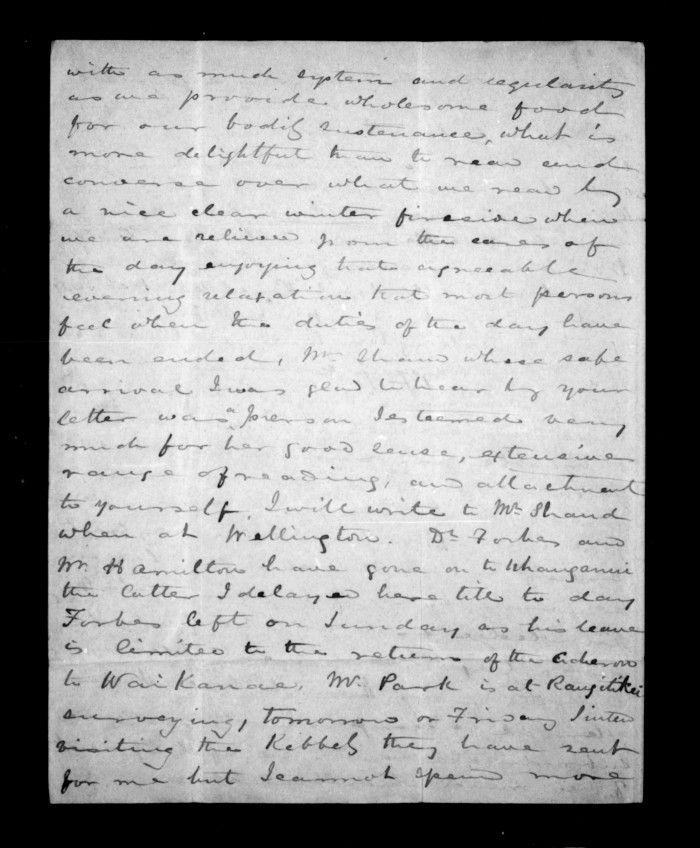 with as much system and regularity
as we provide wholesome food
for our bodily sustenance, what is
more delightful than to read and
converse over what we read by
a nice clear winter fireside when
we are relieved from the cares of
the day enjoying that agreeable
evening relaxation that most persons
feel when the duties of the day have
been ended, Mrs Shand whose safe
arrival I was glad to hear by your
letter was a person I esteemed very
much for her good sense, extensive
range of reading, and attachment
to yourself, I will write to Mrs Shand
when at Wellington. Dr Forbes and
Mr Hamilton have gone on to Whanganui
the Cutter I delayed here till to day
Forbes left on Sunday as his leave
is limited to the return of the Acheron
to WaiKanae, Mr Park is at Rangitikei
surveying, tomorrow or Friday I intend
visiting the Kebbels they have sent
for me but I cannot spend more